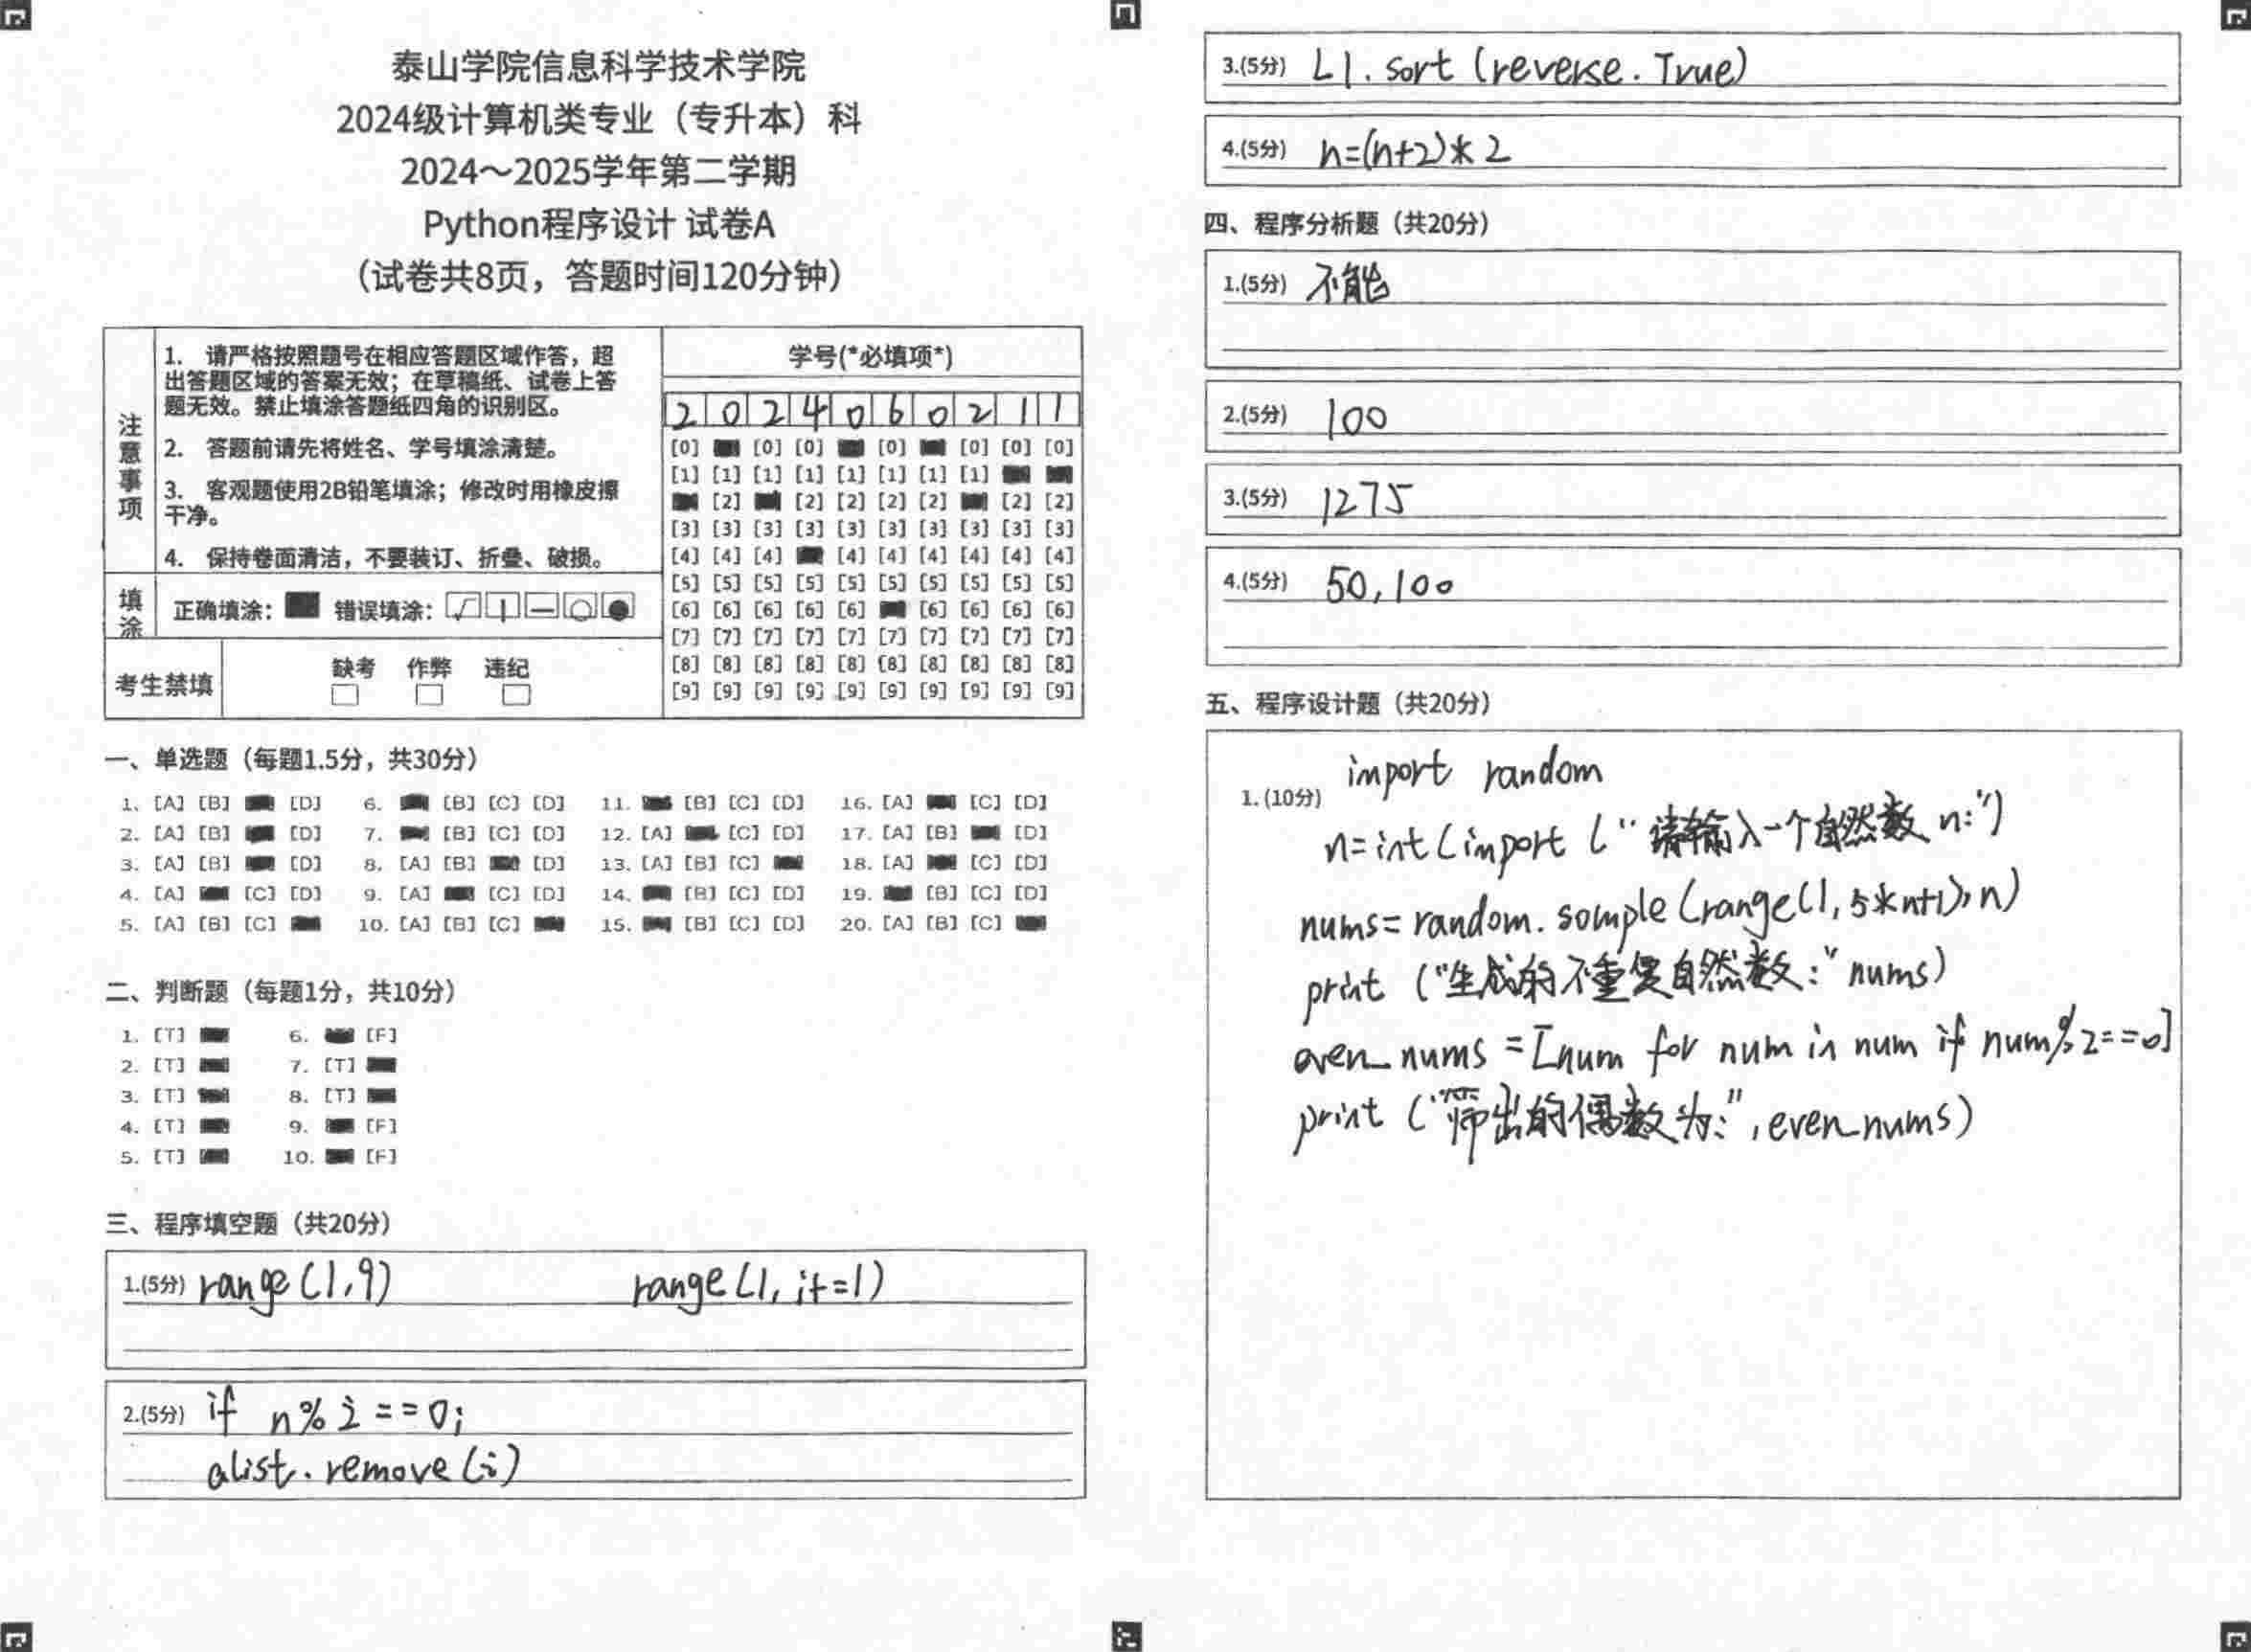 泰山学院信息科学技术学院
2024级计算机类专业（专升本）科
2024～2025学年第二学期
Python程序设计 试卷A
（试卷共8页，答题时间120分钟）
注意事项
1. 请严格按照题号在相应答题区域作答，超
出答题区域的答案无效；在草稿纸、试卷上答
题无效。禁止填涂答题纸四角的识别区。
2. 答题前请先将姓名、学号填涂清楚。
3. 客观题使用2B铅笔填涂；修改时用橡皮擦
干净。
4. 保持卷面清洁，不要装订、折叠、破损。
填涂
正确填涂： 错误填涂：
考生禁填
缺考 作弊 违纪
学号(*必填项*)
2 0 2 4 0 6 0 2 1 1
[0] [0] [0] [0] [0] [0] [0]
[1] [1] [1] [1] [1] [1] [1] [1]
[2] [2] [2] [2] [2] [2] [2]
[3] [3] [3] [3] [3] [3] [3] [3] [3] [3]
[4] [4] [4] [4] [4] [4] [4] [4] [4]
[5] [5] [5] [5] [5] [5] [5] [5] [5] [5]
[6] [6] [6] [6] [6] [6] [6] [6] [6]
[7] [7] [7] [7] [7] [7] [7] [7] [7] [7]
[8] [8] [8] [8] [8] [8] [8] [8] [8] [8]
[9] [9] [9] [9] [9] [9] [9] [9] [9] [9]
一、单选题（每题1.5分，共30分）
1. [A] [B] [D] 6. [B] [C] [D] 11. [B] [C] [D] 16. [A] [C] [D]
2. [A] [B] [D] 7. [B] [C] [D] 12. [A] [C] [D] 17. [A] [B] [D]
3. [A] [B] [D] 8. [A] [B] [D] 13. [A] [B] [C] 18. [A] [C] [D]
4. [A] [C] [D] 9. [A] [C] [D] 14. [B] [C] [D] 19. [B] [C] [D]
5. [A] [B] [C] 10. [A] [B] [C] 15. [B] [C] [D] 20. [A] [B] [C]
二、判断题（每题1分，共10分）
1. [T] 6. [F]
2. [T] 7. [T]
3. [T] 8. [T]
4. [T] 9. [F]
5. [T] 10. [F]
三、程序填空题（共20分）
1.(5分) range(1,9) range(1,i+=1)
2.(5分) if n%i==0;
alist.remove(i)
3.(5分) L1.sort(reverse.True)
4.(5分) n=(n+2)*2
四、程序分析题（共20分）
1.(5分) 不能
2.(5分) 100
3.(5分) 1275
4.(5分) 50,100
五、程序设计题（共20分）
1.(10分) import random
n=int(import("请输入一个自然数n:")
nums=random.somple(range(1,5*n+1),n)
print("生成的不重复自然数:"nums)
even_nums=[num for num in num if num%2==0]
print("筛出的偶数为:",even_nums)